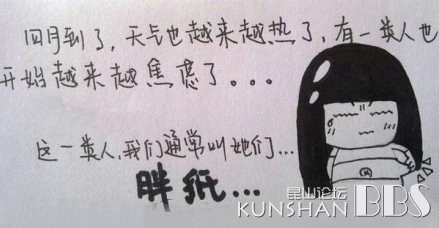 四月到了，天气也越来越热了，有一类人也
开始越来越焦虑了...
这一类人，我们通常叫她们...
胖纸...
昆山论坛
KUNSHAN BBS